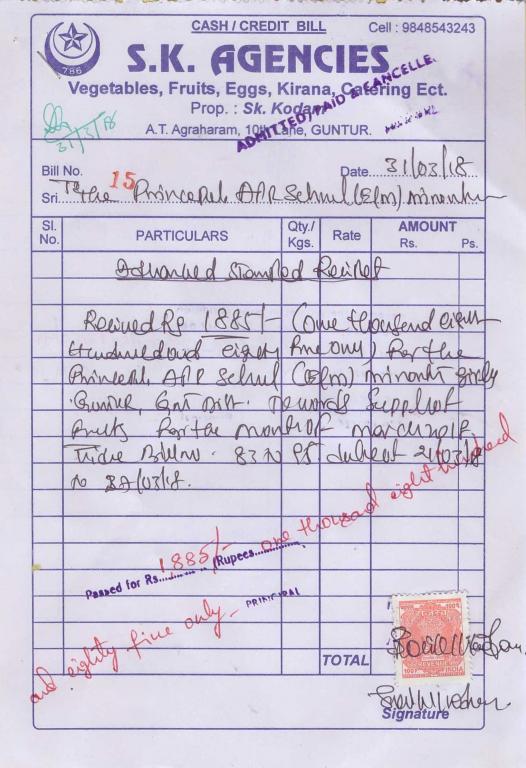 CASH / CREDIT BILL
Cell : 9848543243
786
S.K. AGENCIES
Vegetables, Fruits, Eggs, Kirana, Catering Ect.
Prop. : Sk. Kodar
ADMITTED, PAID & CANCELLE
A.T. Agraharam, 10th Lane, GUNTUR.
31/3/18
Bill No. 15
Date 31/03/18
Sri To the Principal, APR School (E/m) minority
Sl. No. PARTICULARS Qty./ Kgs. Rate AMOUNT Rs. Ps.
Advanced Stamped Reciept
Recived Rs 1885/- (one thousand eight
Hundred and eighty five only) for the
Principal, APR School (E/m) minority girls
Guntur, Gnt Dist. Towards Supply of
fruits for the month of march 2018
Vide Bill no. 83 to 95 21/03/18
to /03/18.
Passed for Rs. 1885/- (Rupees one thousand eight hundred
and eighty five only
PRINCIPAL
TOTAL
REVENUE
INDIA
Signature